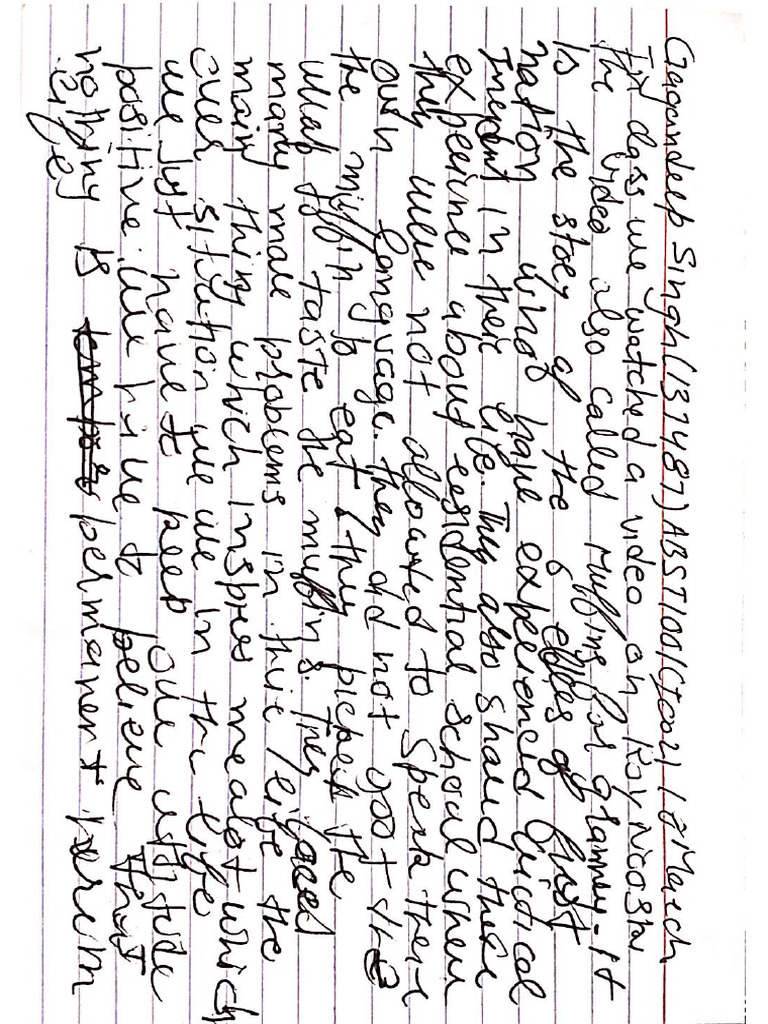 Gagandeep Singh (137487) ABST100 (CJ002) 12 March
In class we watched a video on Roy Nicoster
The video also called muffins for granny. It
is the story of the 6 elders of first
nation who have experienced critical
in their life. They also shared their
experience about residential school where
they were not allowed to speak their
own language. they did not got the
the muffin to eat, they picked the
what taste the muffins. They faced
many more problems in thire life the
many thing which inspires me a lot which
ever sitution we we in the life
we just have to peep our
positive. we have to believe that
nothing is permanent herum
life